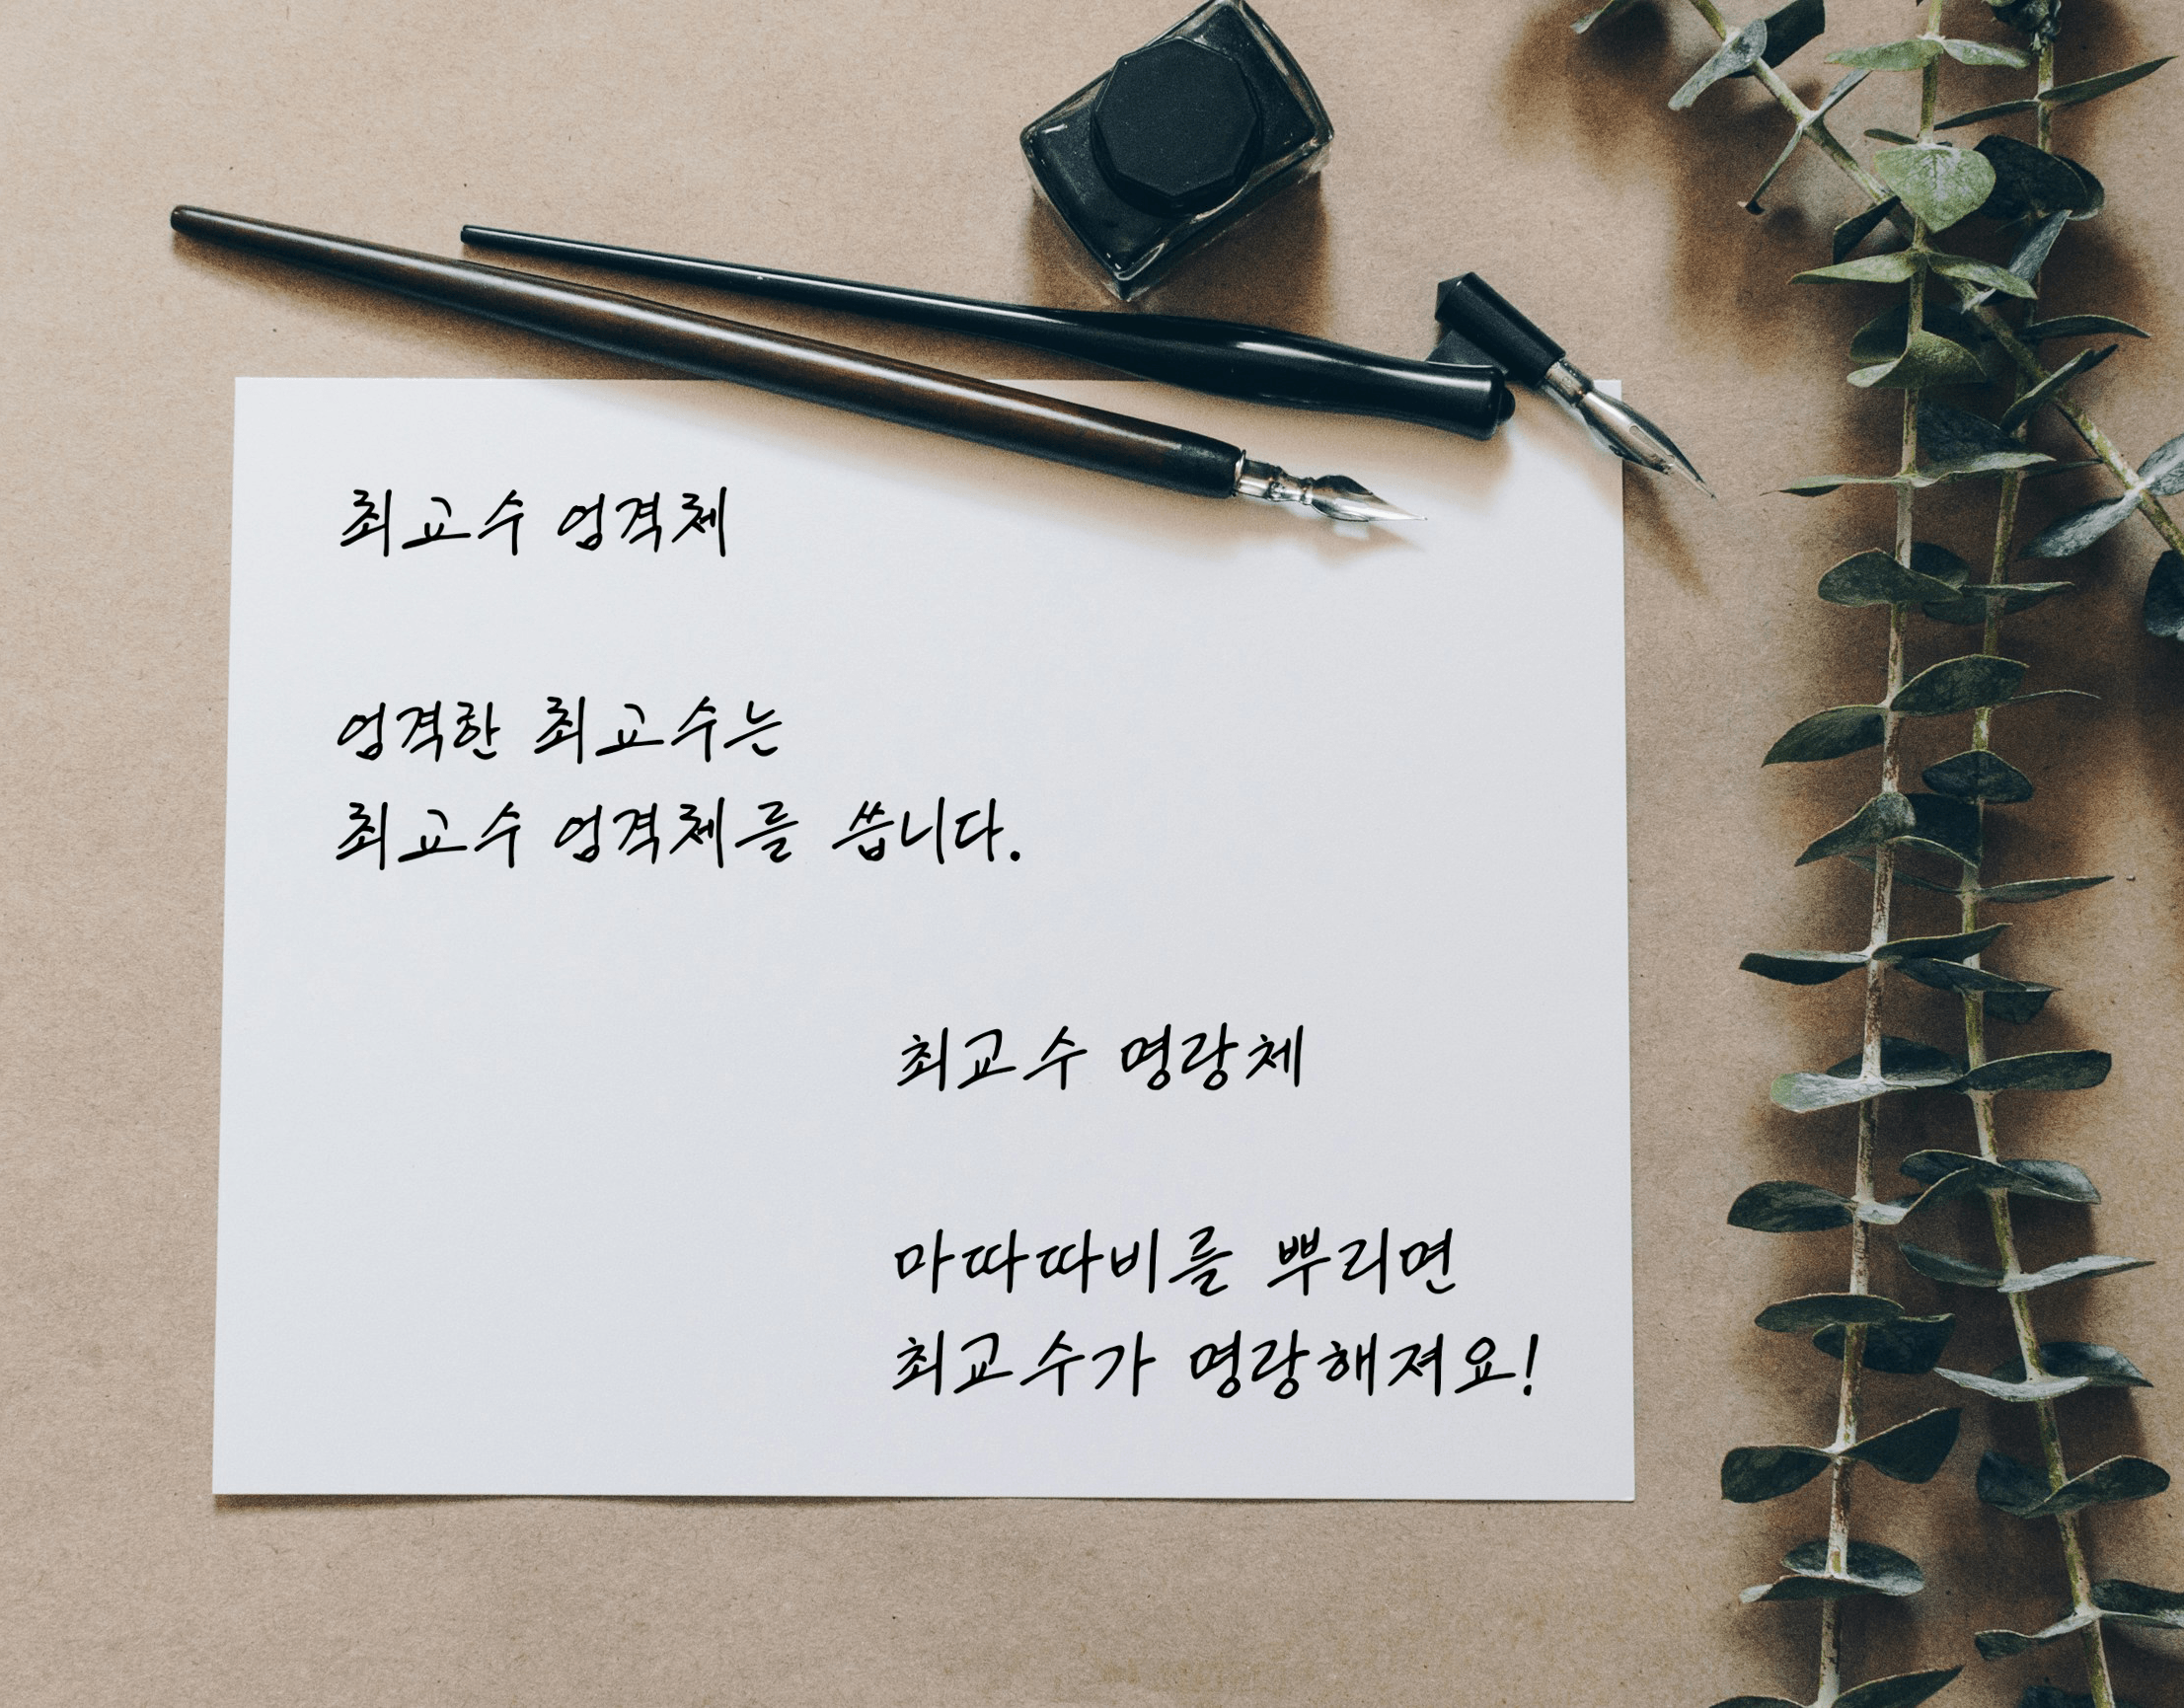 최교수 엄격체
엄격한 최교수는
최교수 엄격체를 씁니다.
최교수 명랑체
마따따비를 뿌리면
최교수가 명랑해져요!